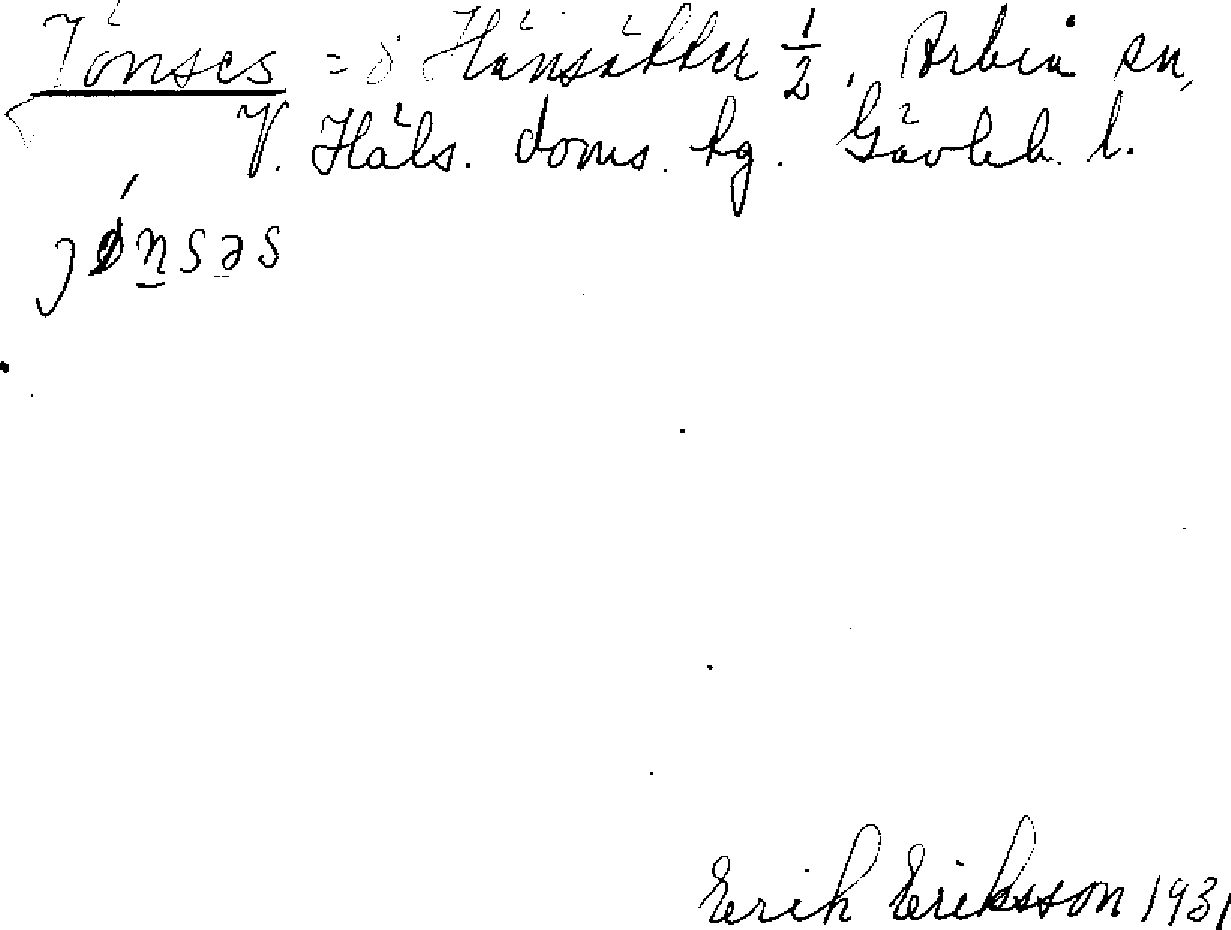 Jönses = i Hänsätter 1/2, Arbrå sn,
V. Häls. doms. hg. Gävleb. l.
jǿn̠səs
Erik Eriksson 1931